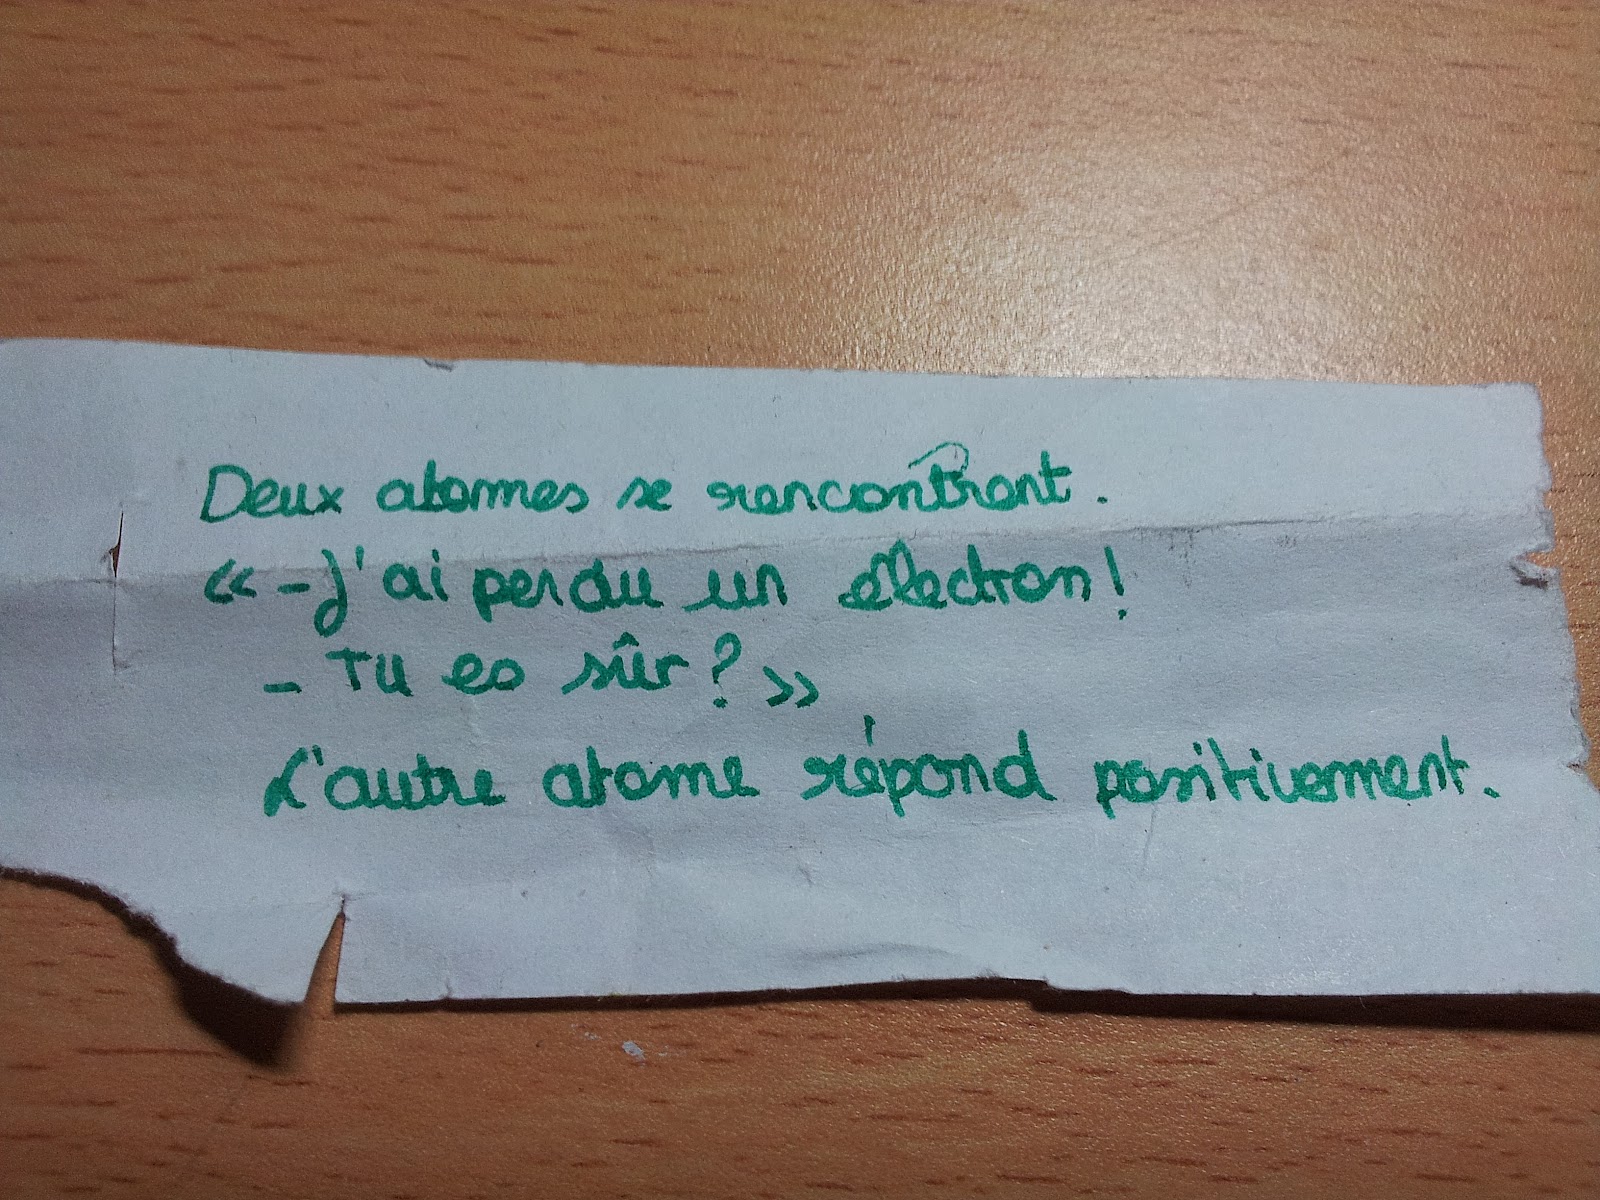 Deux atomes se rencontrent.
« - J'ai perdu un électron !
- Tu es sûr ? »
L'autre atome répond positivement.